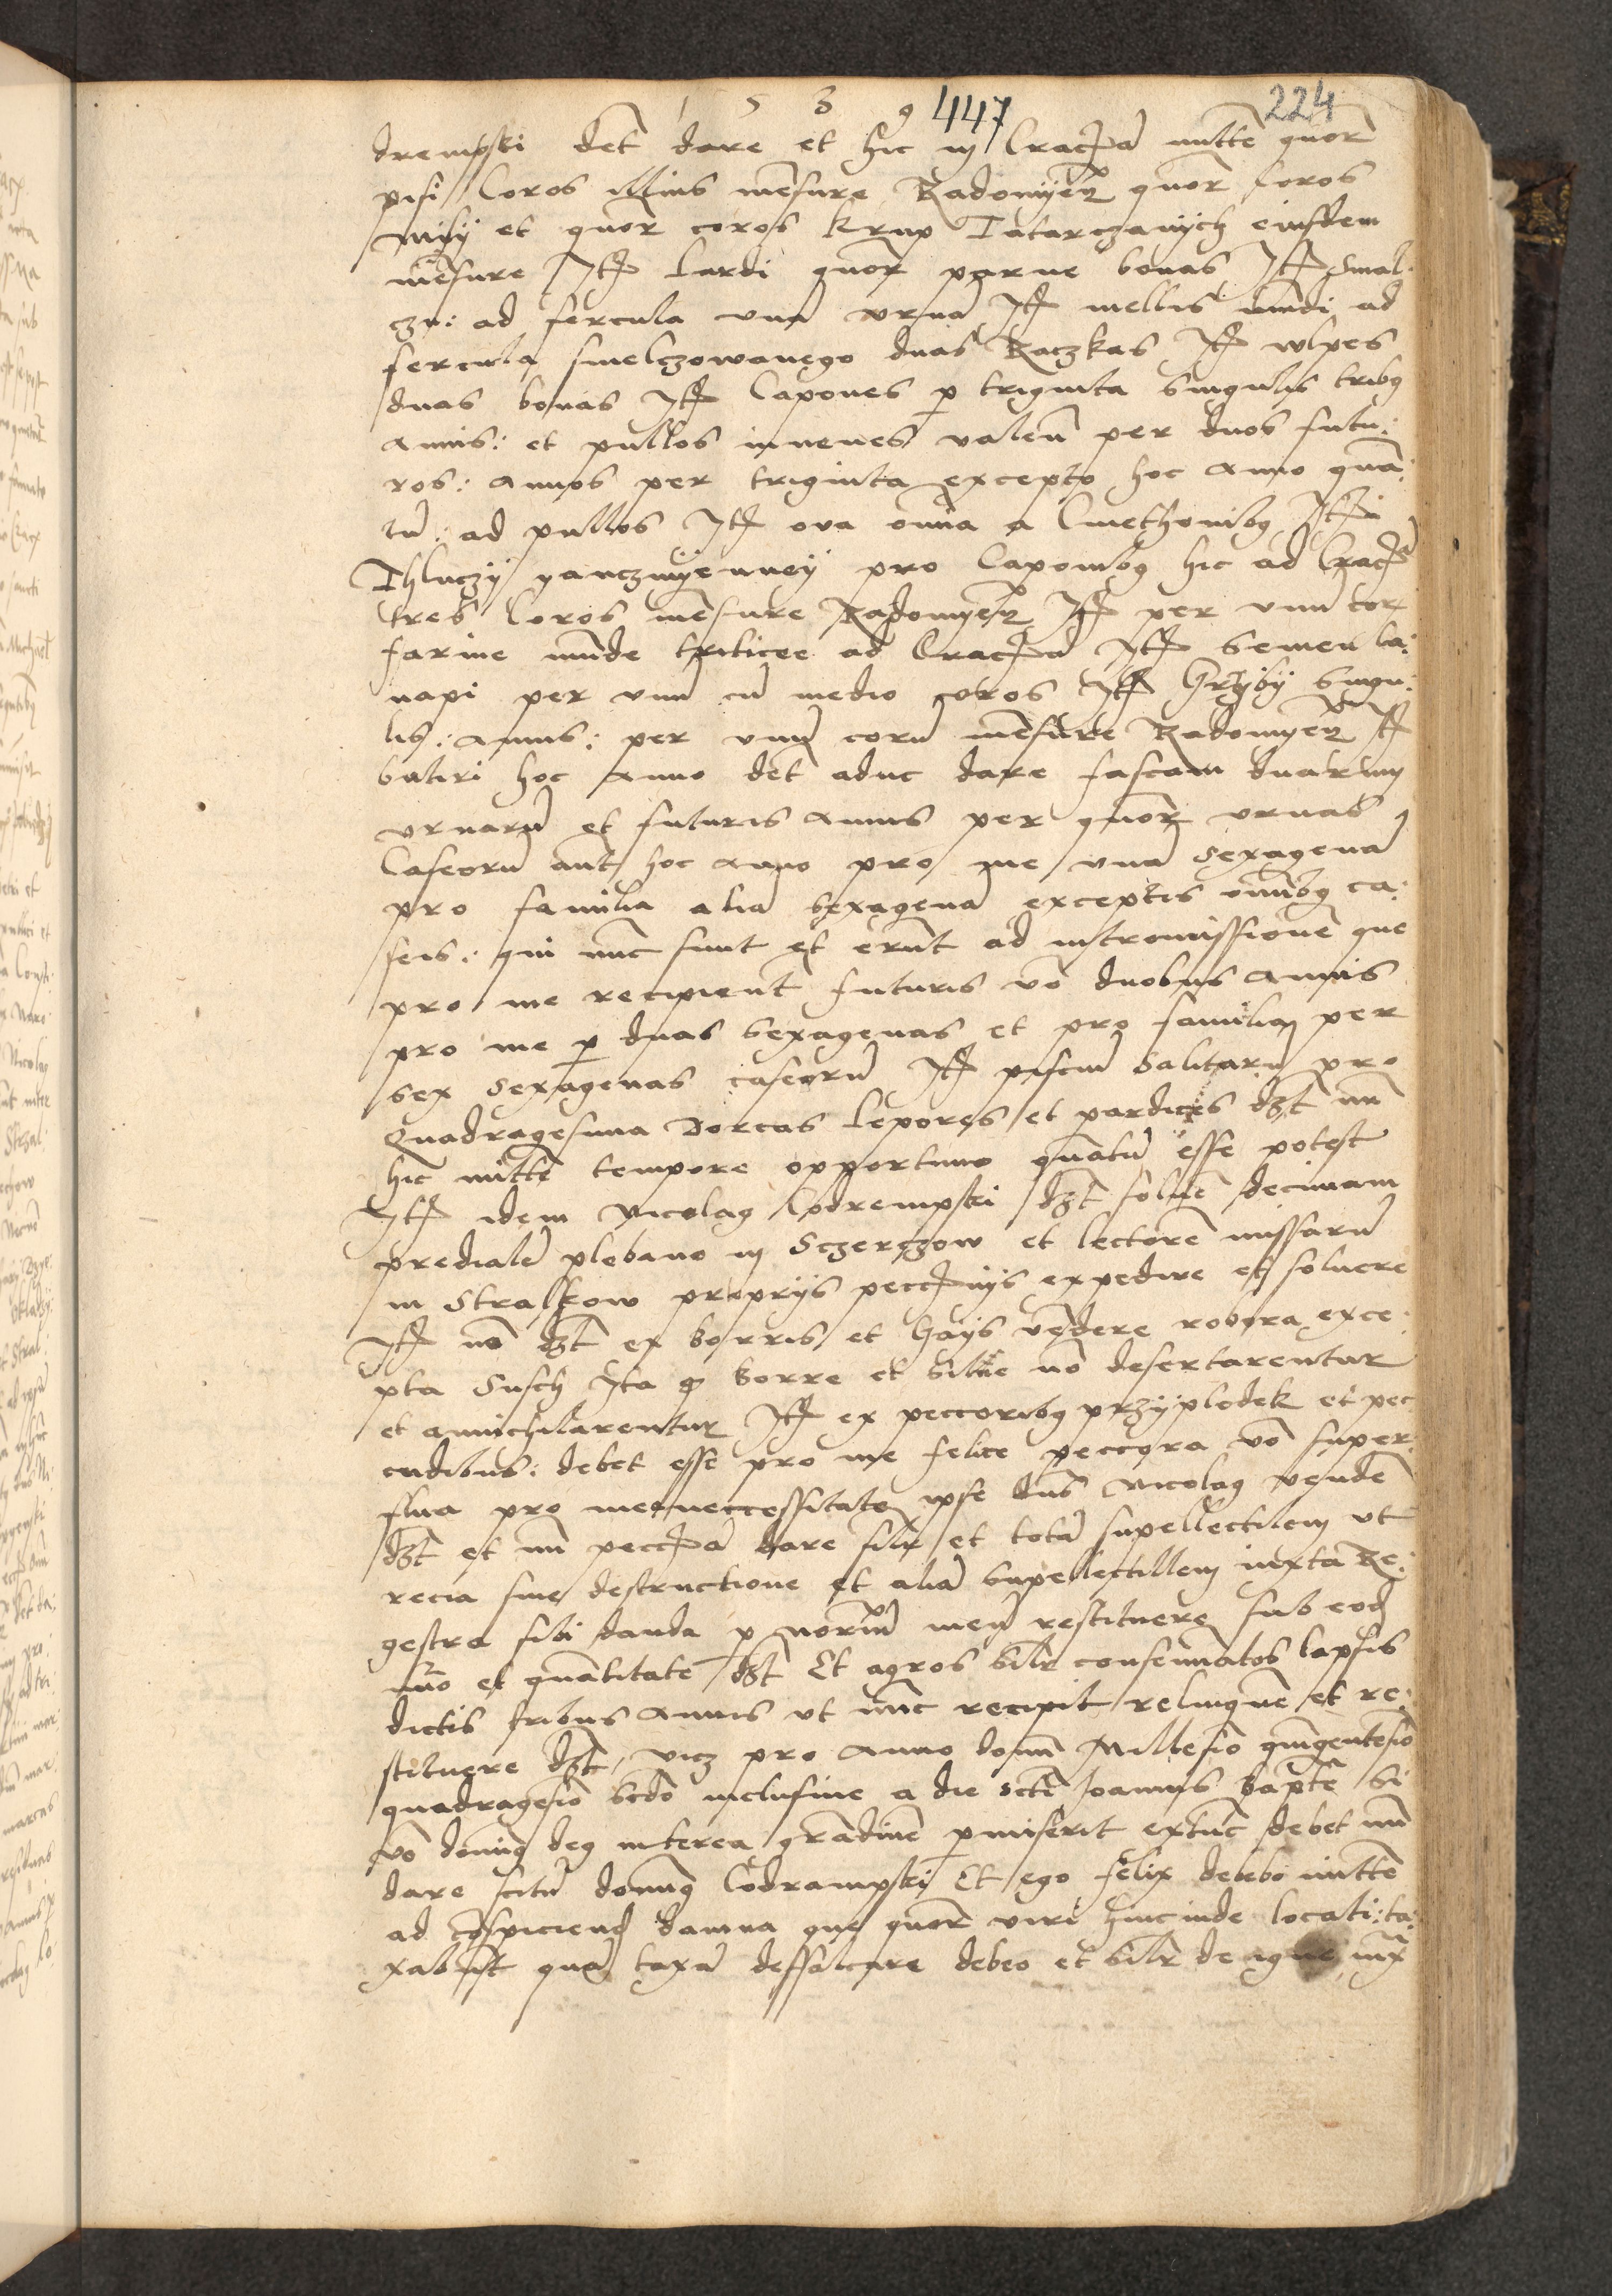 1 5 3 9 447 224
drempski det dare et hic in Crac mitte quor
pisi Coros illius mesure Radomyen quor Coros
et quor coros krup Tatarczanych eiusdem
mesure Ite Lardi quor parne bonas Ite Smal:
czu: ad fercula una urna Ite mellis mudi ad
fercula smelczowanego duas Raczkas Ite wlpes
duas bonas Ite Capones p triginta singulis tribq
annis: et pullos iuuenes valen per duos futu:
ros: annos per triginta excepto hoc anno qua:
tu: ad pullos Ite ova omnia a Cmethonibq Ite
Thluczy yanczmyenney pro Caponibq hic ad Crac
tres Coros mesure Radomyen Ite per unu cor
farine munde triticee ad Crac Ite Semen ca:
napi per unu cu medio coros Ite Grzyby singu:
lis: annis: per unu coru mesure Radomyen Ite
butiri hoc anno det aduc dare fascam duarum
urnaru et futuris annis per quor urnas
Caseoru aut hoc anno pro me una Sexagena
pro familia alia sexagena exceptis omnibq ca:
seis: qui nuc sunt et erunt ad intromissione que
pro me recipient futuris vo duobus annis
pro me p duas sexagenas et pro familia per
sex Sexagenas caseoru Ite pisciu Salitaru pro
Quadragesima Dorcas Lepores et pardices dzt mi
hic mitte tempore opportuno quatu esse potest
Ite idem Nicolaq Codrempski dzt solue decimam
prediale plebano in Sczerczow et lectore missaru
in Stralkow proprys pecc expedire et soluere
Ite no dzt ex borris et Gays vedere robora exce:
pta Susch Ita q borre et silue no desertarentur
et annichilarentur Ite ex peccoribq przyplodek et pec
cudibus: debet esse pro me felice peccora vo super:
flua pro mea neccessitate ipse dns Nicolaq vende
dzt et mi pecc dare silr et tota supellectilem ut
recia sine destructione et alia supellectillem iuxta Re:
gestra sibi danda p meu restituere sub eod
nuo et quatitate dzt Et agros silr conseminatos lapsis
dictis tribus annis ut nuc recipit relinque et re:
stituere dzt, vicz pro anno domi Millesio quigentesio
quadragesio scdo inclusiue a die scti Joannis bapte Si
vo domiq deq interea gradine pmiserit extuc debet mi
dare scitu domiq Codrampski Et ego felix debebo mitte
ad cospiciend damna que quor viri hincinde locati: ta:
xabut qua taxa deffalcare debeo et silr de igne